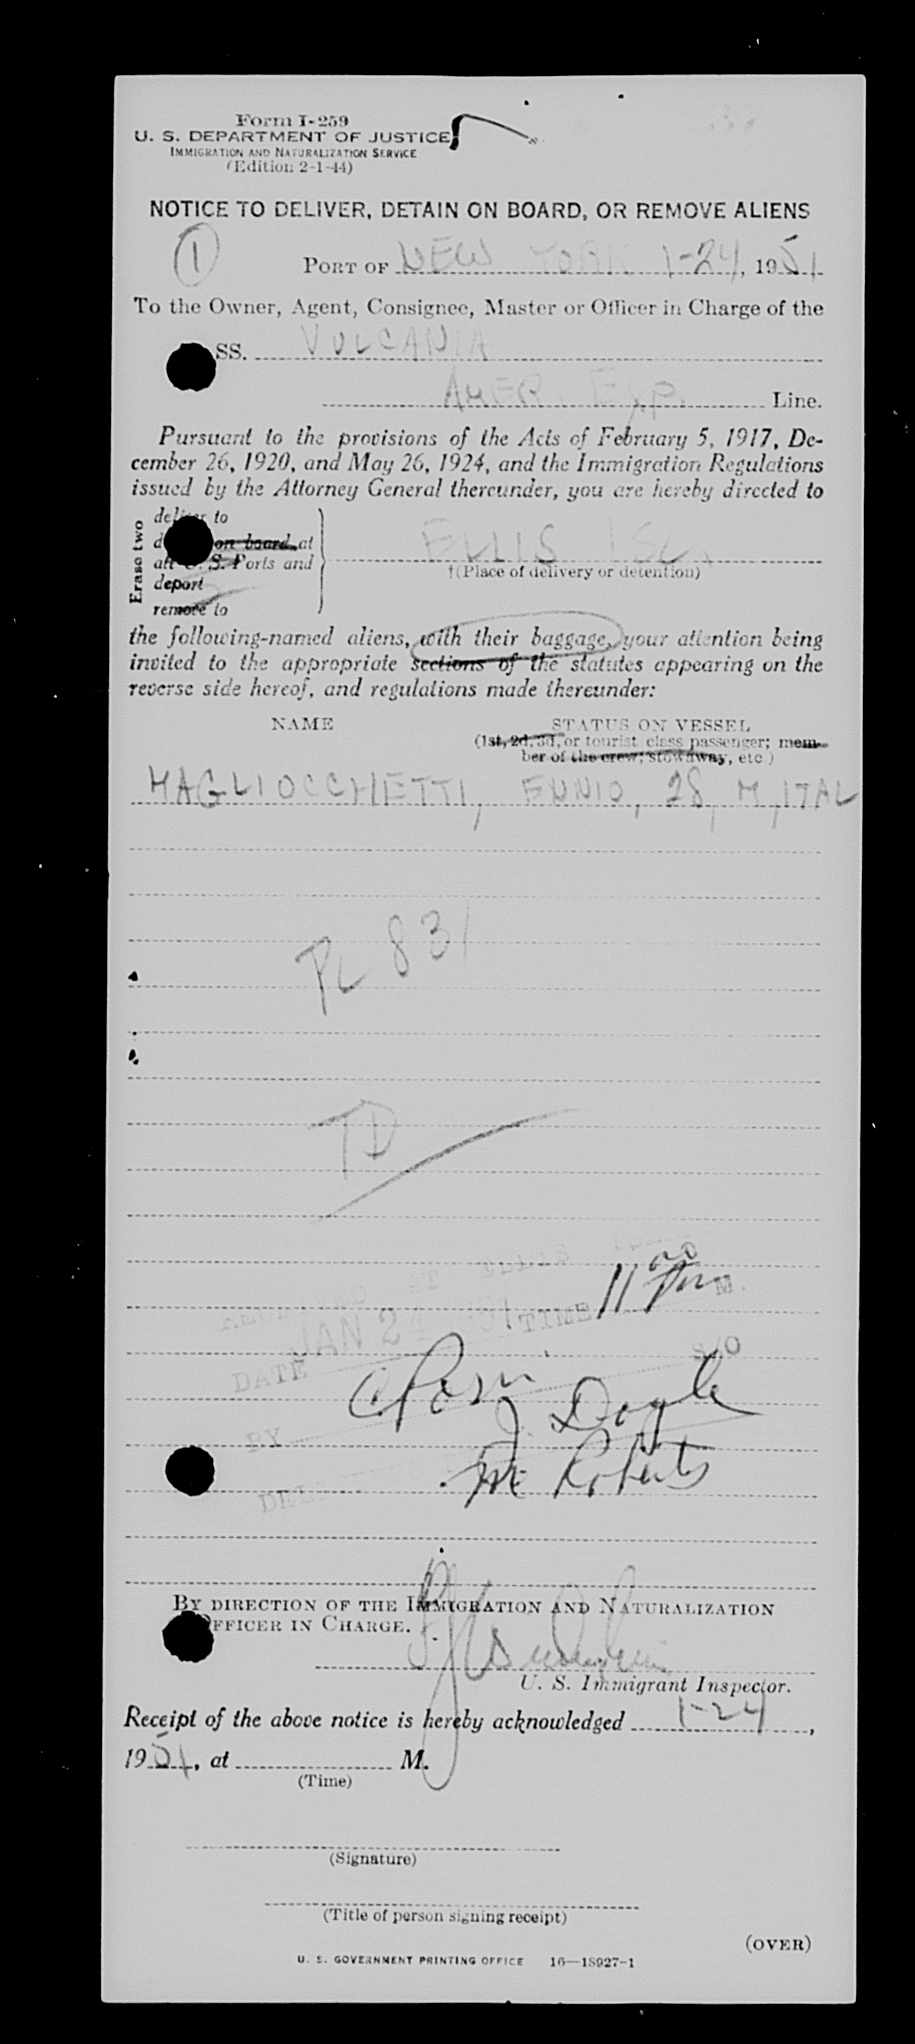 Form I-259
U. S. DEPARTMENT OF JUSTICE
IMMIGRATION AND NATURALIZATION SERVICE
(Edition 2-1-44)
NOTICE TO DELIVER, DETAIN ON BOARD, OR REMOVE ALIENS
1
PORT OF NEW YORK 1-24, 1951
To the Owner, Agent, Consignee, Master or Officer in Charge of the
SS. VULCANIA
AMER. EXP. Line.
Pursuant to the provisions of the Acts of February 5, 1917, De-
cember 26, 1920, and May 26, 1924, and the Immigration Regulations
issued by the Attorney General thereunder, you are hereby directed to
Erase two
deliver to
on board at
all U. S. Ports and
deport
remove to
ELLIS ISL.
†(Place of delivery or detention)
the following-named aliens, with their baggage, your attention being
invited to the appropriate sections of the statutes appearing on the
reverse side hereof, and regulations made thereunder:
NAME STATUS ON VESSEL
(1st, 2d, 3d, or tourist class passenger; mem-
ber of the crew; stowaway, etc.)
MAGLIOCCHETTI, ENNIO, 28, M, ITAL
PL 831
TD
AT ELLIS
11 00 M.
JAN 24 TIME
DATE
S/O
J Doyle
BY
Mc Roberts
DEL.
BY DIRECTION OF THE IMMIGRATION AND NATURALIZATION
OFFICER IN CHARGE.
U. S. Immigrant Inspector.
Receipt of the above notice is hereby acknowledged 1-24,
1951, at M.
(Time)
(Signature)
(Title of person signing receipt)
(OVER)
U. S. GOVERNMENT PRINTING OFFICE 16—18927-1